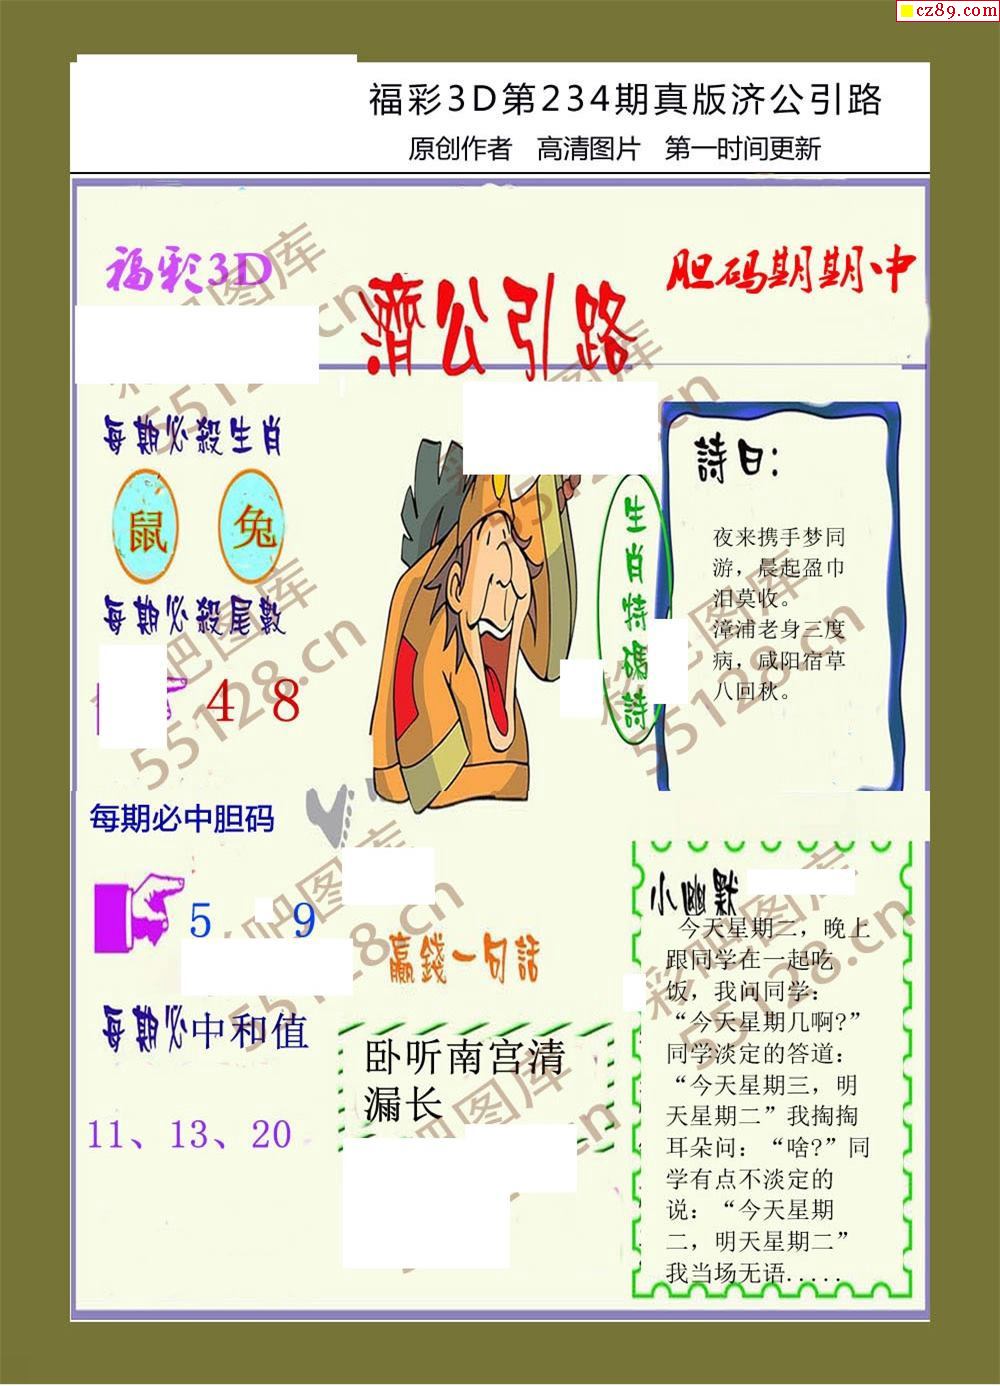 cz89.com
福彩3D第234期真版济公引路
原创作者 高清图片 第一时间更新
福彩3D
濟公引路
胆码期期中
每期必殺生肖
鼠 兔
每期必殺尾數
4 8
每期必中胆码
5 9
每期必中和值
11、13、20
生肖特碼詩
詩曰:
夜来携手梦同
游，晨起盈巾
泪莫收。
漳浦老身三度
病，咸阳宿草
八回秋。
赢錢一句話
卧听南宫清
漏长
小幽默
今天星期二，晚上
跟同学在一起吃
饭，我问同学：
“今天星期几啊?”
同学淡定的答道：
“今天星期三，明
天星期二”我掏掏
耳朵问：“啥?”同
学有点不淡定的
说：“今天星期
二，明天星期二”
我当场无语.....
彩吧图库
55128.cn